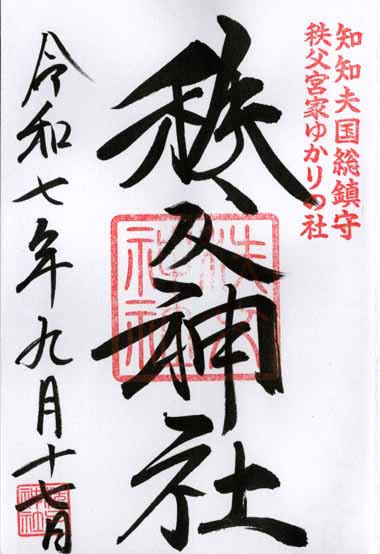 知知夫国総鎮守
秩父宮家ゆかりの社
秩父神社
秩父神社
令和七年九月十七日